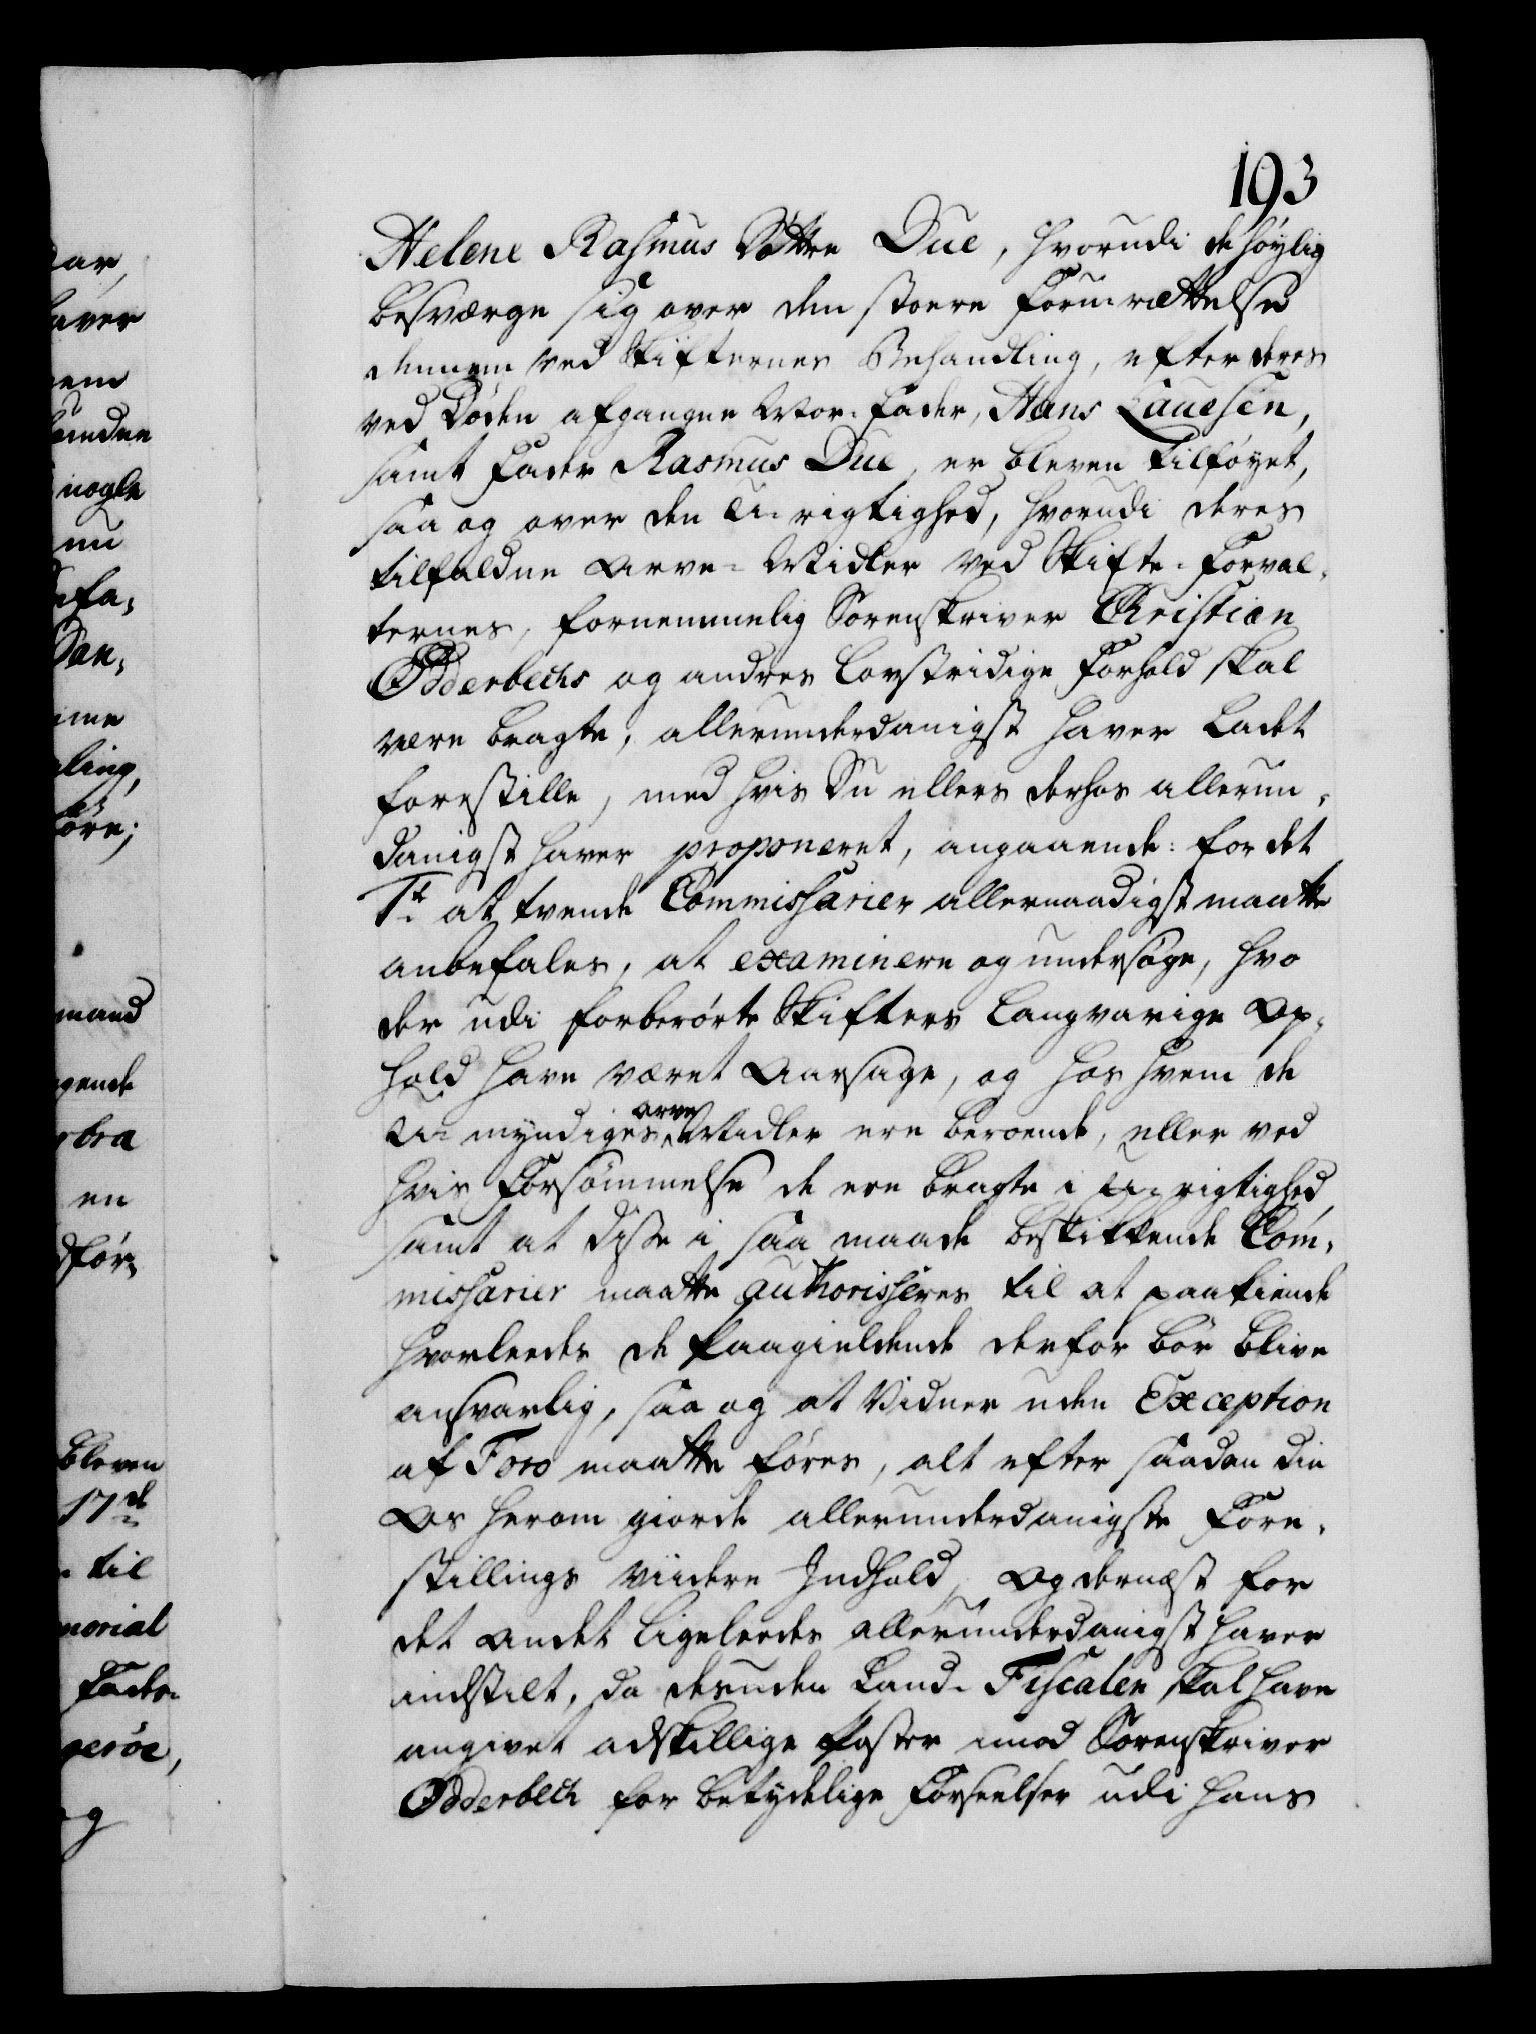 193
Helene Rasmus Døttre Due, hvorudi de höylig
besværge sig over den stoere Foruurættelse
dennem ved Skifternes Behandling, efter deres
ved Døden afgangne Mor-Fader, Hans Lauesen,
samt Fader Rasmus Due, er bleven tilföyet,
saa og over den U-rigtighed, hvorudi deres
tilfaldne Arve-Midler ved Skifte-Forval-
ternes, fornemmelig Sorenskriver Christian
Odderbechs og andres lovstridige Forhold skal
være bragte, allerunderdanigst haver ladet
forestille, med hvis Du ellers derhos allerun-
danigst haver proponeret, angaaende: for det
1t at tvende Commissarier allernaadigst maatte
anbefales, at examinere og undersøge, hvo
der udi forberørte Skifters langvarige Op-
hold have været Aarsage, og hos hvem de
U-myndiges arve Midler ere beroende, eller ved
hvis Forsømmelse de ere bragte i U-rigtighed,
samt at disse i saa maade beskikkende Com-
missarier maatte authoriseres til at paakiende
hvorleedes de paagieldende derfor bör blive
ansvarlig, saa og at Vidner uden Exception
af Foro maatte føres, alt efter saadan din
Os herom giorde allerunderdanigste Fore-
stillings viidere Indhold, Og dernæst for
det andet ligeleedes allerunderdanigst haver
indstilt, da desuden Land-Fiscalen skal have
angivet adskillige Poster imod Sorenskriver
Odderbech for betydelige Forseelser udi hans
ar,
aver
nogle
nu
fa-
ling,
mand
gende
bra
en
bleven
17de
til
morial
Fader
geröe,